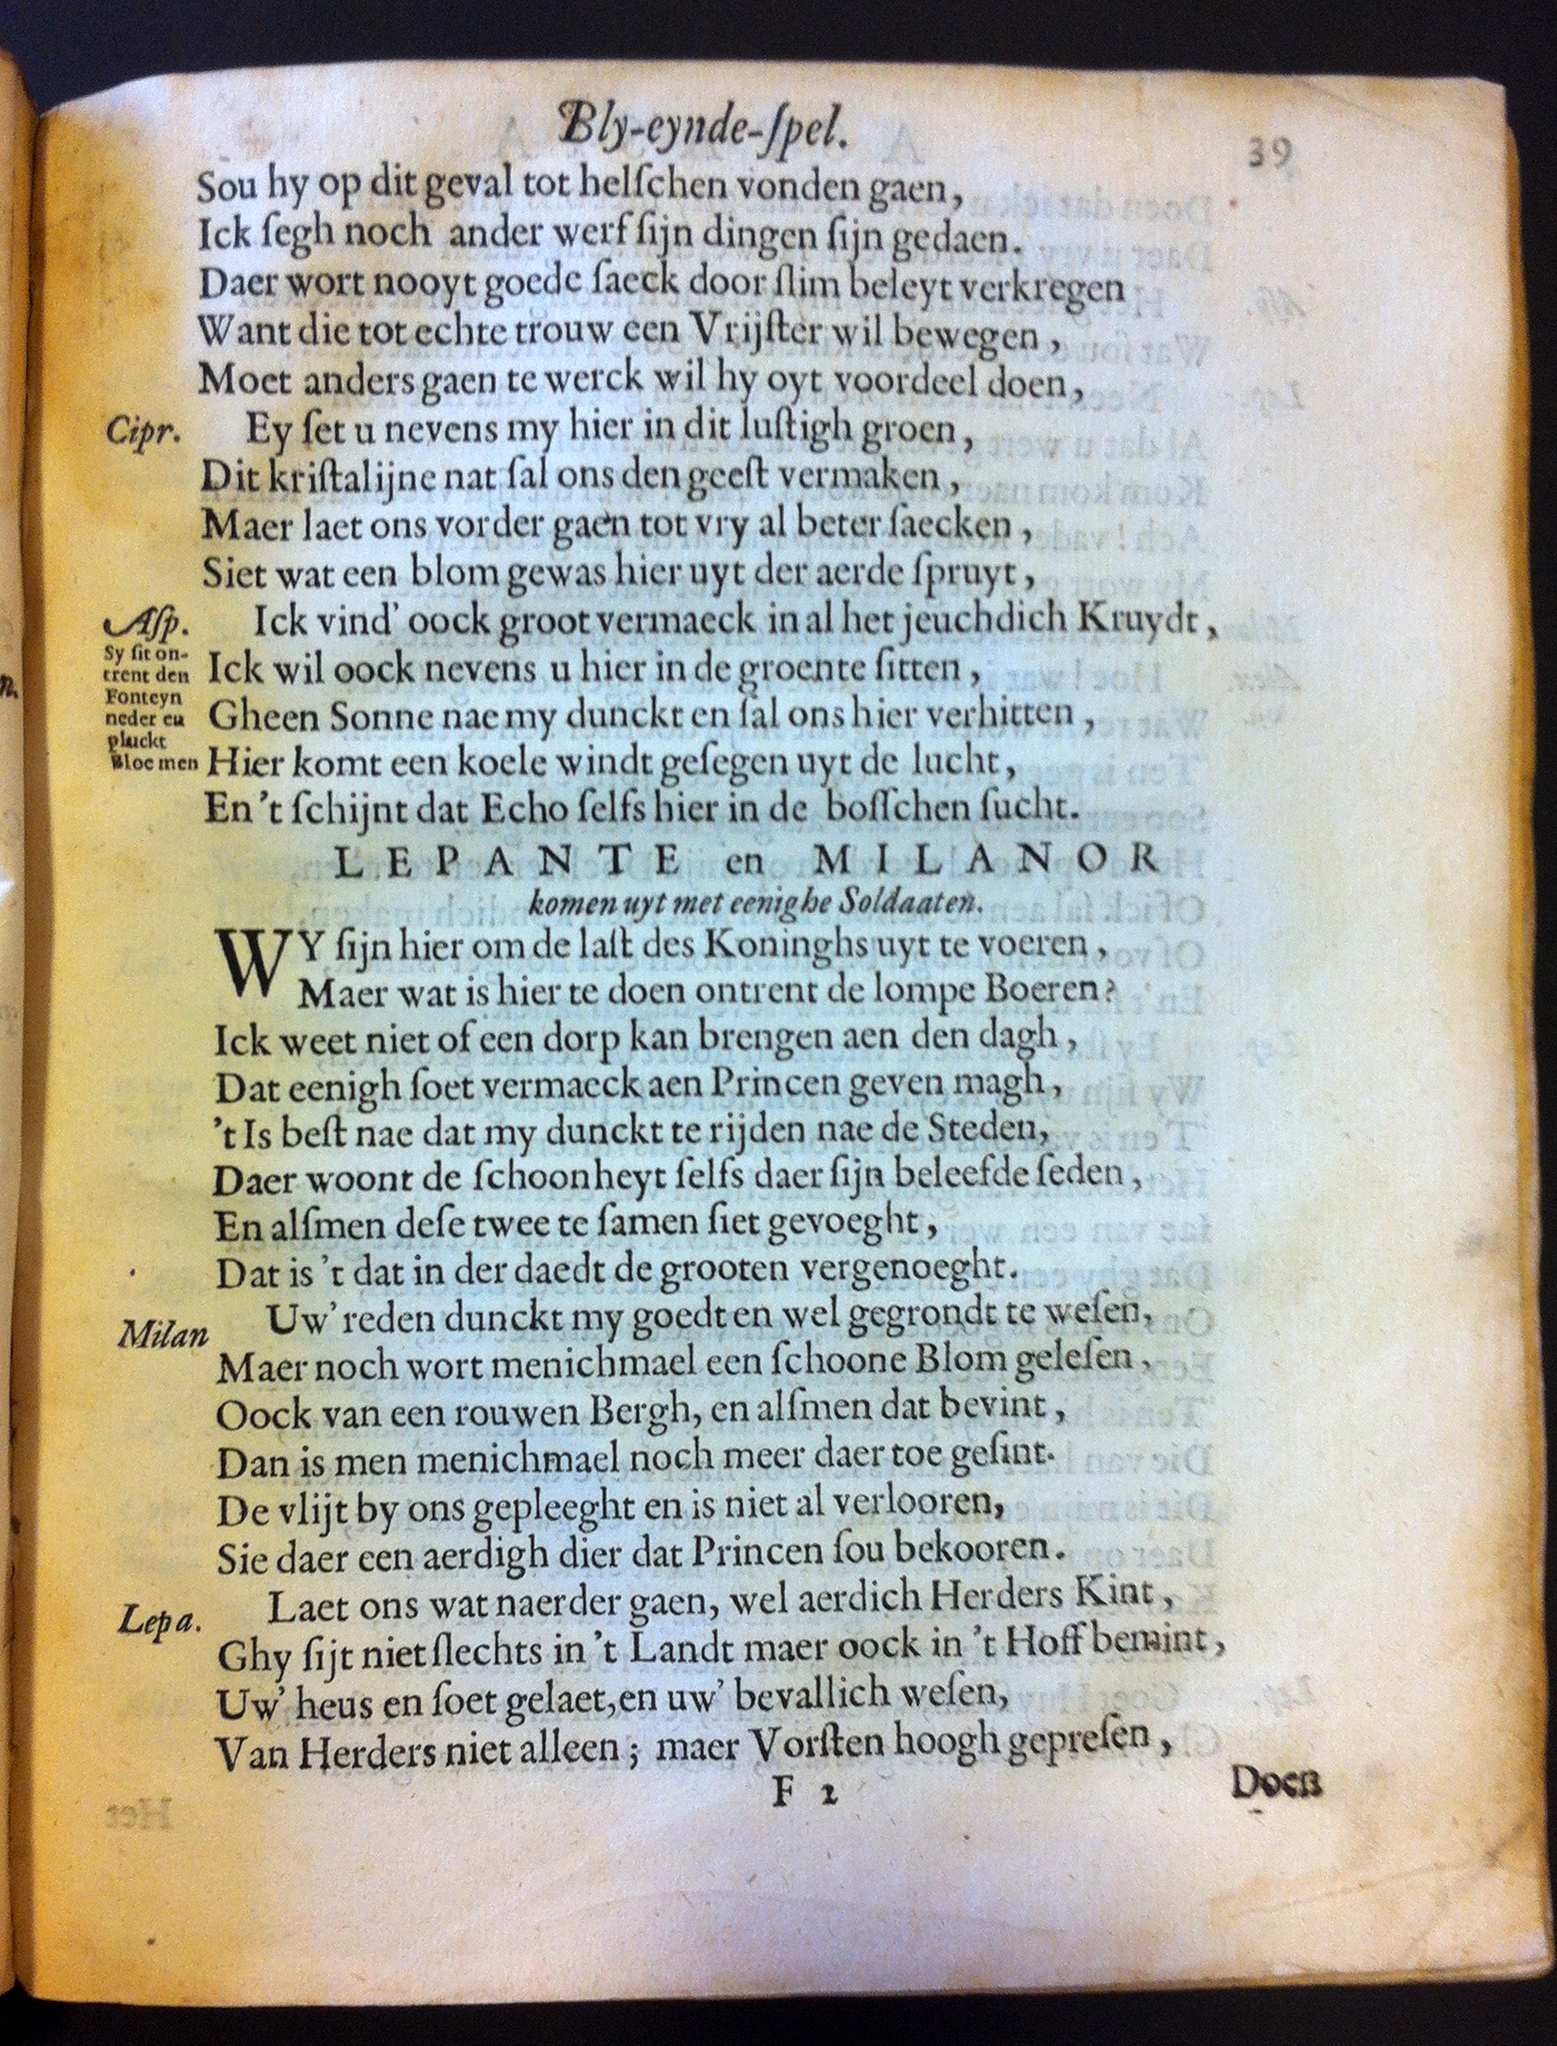 Bly-eynde-ſpel. 39
Sou hy op dit geval tot helſchen vonden gaen,
Ick ſegh noch ander werf ſijn dingen ſijn gedaen.
Daer wort nooyt goede ſaeck door ſlim beleyt verkregen
Want die tot echte trouw een Vrijſter wil bewegen,
Moet anders gaen te werck wil hy oyt voordeel doen,
Cipr. Ey ſet u nevens my hier in dit luſtigh groen,
Dit kriſtalijne nat ſal ons den geeſt vermaken,
Maer laet ons vorder gaen tot vry al beter ſaecken,
Siet wat een blom gewas hier uyt der aerde ſpruyt,
Aſp. Ick vind' oock groot vermaeck in al het jeuchdich Kruydt,
Sy ſit on-
trent den
Fonteyn
neder en
pluckt
Bloemen
Ick wil oock nevens u hier in de groente ſitten,
Gheen Sonne nae my dunckt en ſal ons hier verhitten,
Hier komt een koele windt geſegen uyt de lucht,
En 't ſchijnt dat Echo ſelfs hier in de boſſchen ſucht.
LEPANTE en MILANOR
komen uyt met eenighe Soldaaten.
WY ſijn hier om de laſt des Koninghs uyt te voeren,
Maer wat is hier te doen ontrent de lompe Boeren?
Ick weet niet of een dorp kan brengen aen den dagh,
Dat eenigh ſoet vermaeck aen Princen geven magh,
't Is beſt nae dat my dunckt te rijden nae de Steden,
Daer woont de ſchoonheyt ſelfs daer ſijn beleefde ſeden,
En alſmen deſe twee te ſamen ſiet gevoeght,
Dat is 't dat in der daedt de grooten vergenoeght.
Milan Uw' reden dunckt my goedt en wel gegrondt te weſen,
Maer noch wort menichmael een ſchoone Blom geleſen,
Oock van een rouwen Bergh, en alſmen dat bevint,
Dan is men menichmael noch meer daer toe geſint.
De vlijt by ons gepleeght en is niet al verlooren,
Sie daer een aerdigh dier dat Princen ſou bekooren.
Lepa. Laet ons wat naerder gaen, wel aerdich Herders Kint,
Ghy ſijt niet ſlechts in 't Landt maer oock in 't Hoff bemint,
Uw' heus en ſoet gelaet, en uw' bevallich weſen,
Van Herders niet alleen; maer Vorſten hoogh gepreſen,
F 2 Doen